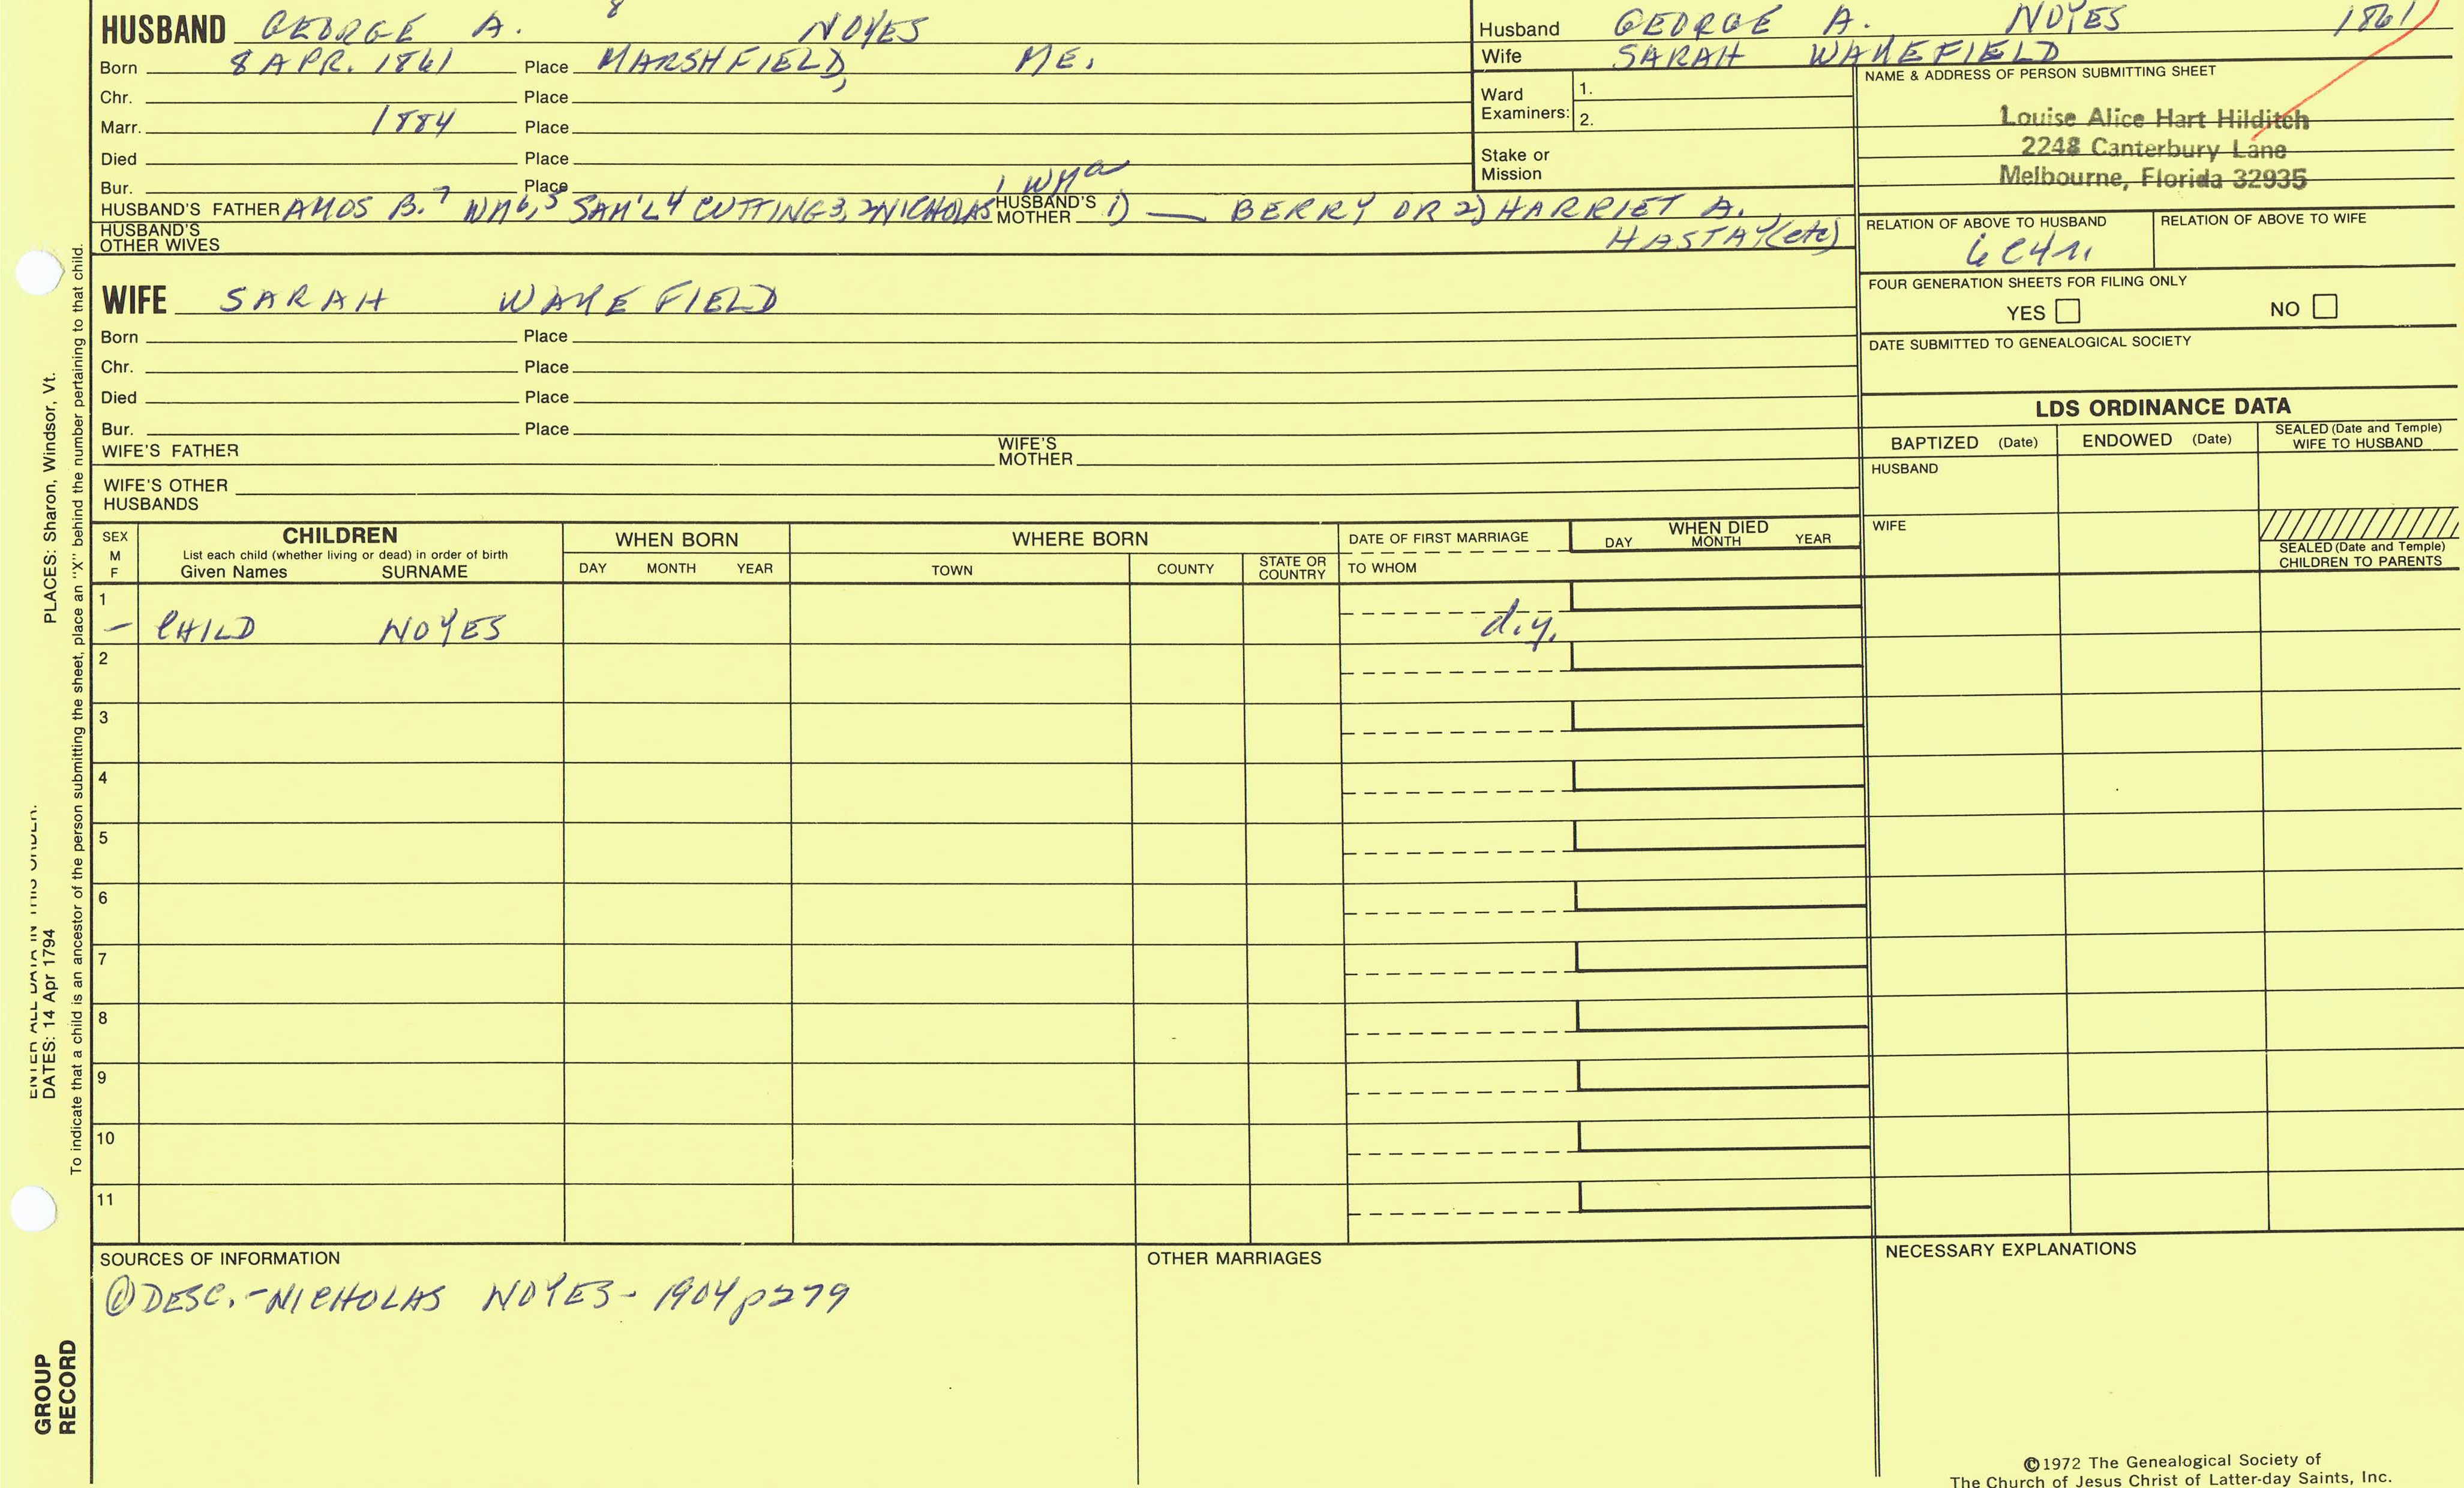 HUSBAND GEORGE A. 8 NOYES
Born 8 APR. 1861 Place MARSHFIELD, ME.
Chr. Place
Marr. 1884 Place
Died Place
Bur. Place
HUSBAND'S FATHER AMOS B.7 WM6,5 SAM'L4 CUTTING3, 2NICHOLAS1 WMa HUSBAND'S MOTHER 1) — BERRY OR 2) HARRIET A. HASTAY (etc)
HUSBAND'S OTHER WIVES
WIFE SARAH WAKEFIELD
Born Place
Chr. Place
Died Place
Bur. Place
WIFE'S FATHER WIFE'S MOTHER
WIFE'S OTHER HUSBANDS
Husband GEORGE A. NOYES 1861
Wife SARAH WAKEFIELD
Ward Examiners: 1.
2.
Stake or Mission
NAME & ADDRESS OF PERSON SUBMITTING SHEET
Louise Alice Hart Hilditch
2248 Canterbury Lane
Melbourne, Florida 32935
RELATION OF ABOVE TO HUSBAND RELATION OF ABOVE TO WIFE
6C4r.
FOUR GENERATION SHEETS FOR FILING ONLY
YES NO
DATE SUBMITTED TO GENEALOGICAL SOCIETY
LDS ORDINANCE DATA
BAPTIZED (Date) ENDOWED (Date) SEALED (Date and Temple) WIFE TO HUSBAND
HUSBAND
WIFE
SEALED (Date and Temple) CHILDREN TO PARENTS
SEX M F
CHILDREN
List each child (whether living or dead) in order of birth
Given Names SURNAME
WHEN BORN
DAY MONTH YEAR
WHERE BORN
TOWN COUNTY STATE OR COUNTRY
DATE OF FIRST MARRIAGE
TO WHOM
WHEN DIED
DAY MONTH YEAR
1
— CHILD NOYES d.y.
2
3
4
5
6
7
8
9
10
11
SOURCES OF INFORMATION
① DESC.-NICHOLAS NOYES- 1904 p279
OTHER MARRIAGES
NECESSARY EXPLANATIONS
©1972 The Genealogical Society of
The Church of Jesus Christ of Latter-day Saints, Inc.
PLACES: Sharon, Windsor, Vt.
ENTER ALL DATA IN THIS ORDER:
DATES: 14 Apr 1794
To indicate that a child is an ancestor of the person submitting the sheet, place an "X" behind the number pertaining to that child.
GROUP
RECORD